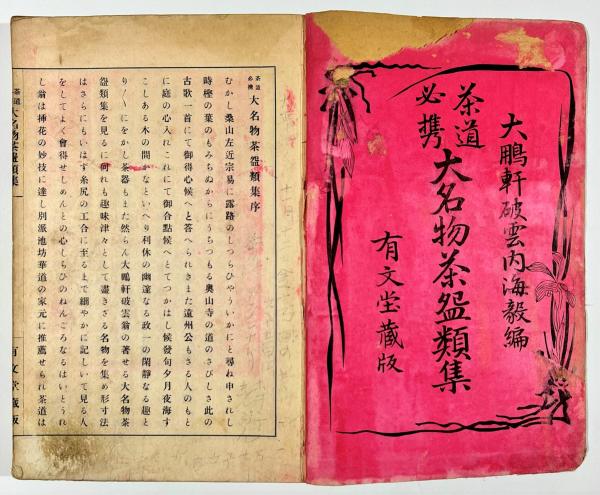 大鵬軒破雲内海毅編
茶道
必携
大名物茶盌類集
有文堂藏版
茶道
必携
大名物茶盌類集序
むかし桑山左近宗易に露路のしつらひやういかにと尋ね申されし
時樫の葉のもみちぬからにうちつもる奥山寺の道のさびしさ此の
古歌一首にて御得心候へと答へられきまた遠州公もさる人のもと
に庭の心入れこれにて御合點候へとてつかはし候發句夕月夜海す
こしある木の間かなといへり利休の幽邃なる政一の閑靜なる趣と
り〳〵にをかし茶器もまた然らん大鵬軒破雲翁の著せる大名物茶
盌類集を見るに何れも趣味津々として盡きざる名物を集め形寸法
はさらにもいはず糸尻の工合に至るまで細やかに記しいて見る人
をしてよく會得せしめんとの心しらひのねんごろなるはいとうれ
し翁は挿花の妙技に達し別派池坊華道の家元に推薦せられ茶道は
茶道
必携
大名物茶盌類集
一
有文堂藏版